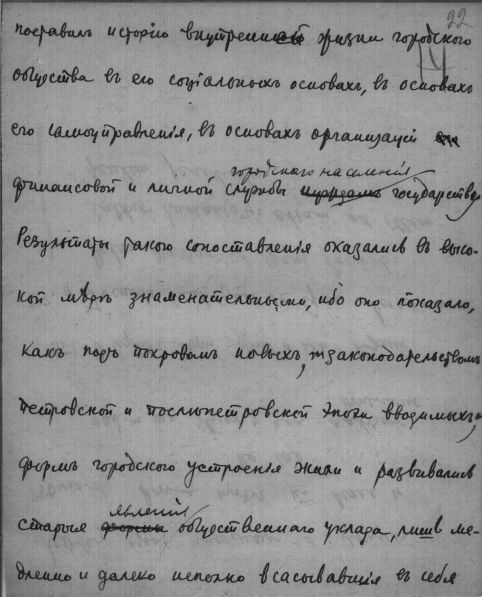 22
14
поставилъ исторію внутренней жизни городского
общества въ его соціальныхъ основахъ, въ основахъ
его самоуправленія, въ основахъ организацій
городского населенія
финансовой и личной службы государству.
Результаты такого сопоставленія оказались въ высо-
кой мѣрѣ знаменательными, ибо оно показало,
какъ подъ покровомъ новыхъ, законодательствомъ
петровской и послѣпетровской эпохи вводимыхъ,
формъ городского устроенія жили и развивались
явленія
старыя формы общественнаго уклада, лишь ме-
дленно и далеко неполно всасывавшія въ себя